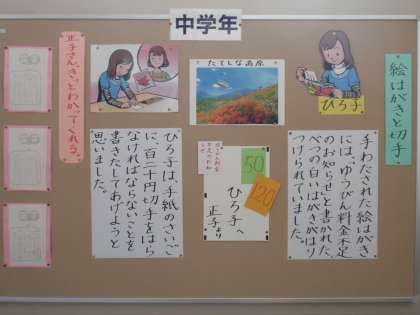 中学年
絵はがきと切手
ひろ子
手わたされた絵はがき
には、「ゆうびん料金不足
のお知らせ」と書かれた、
べつの白いはがきがはり
つけられていました。
たてしな高原
50
120
ひろ子へ
正子より
ひろ子は、手紙のさいご
に、百二十円切手をはら
なければならないことを
書きたしてあげようと
思いました。
正子さん、きっとわかってくれる。